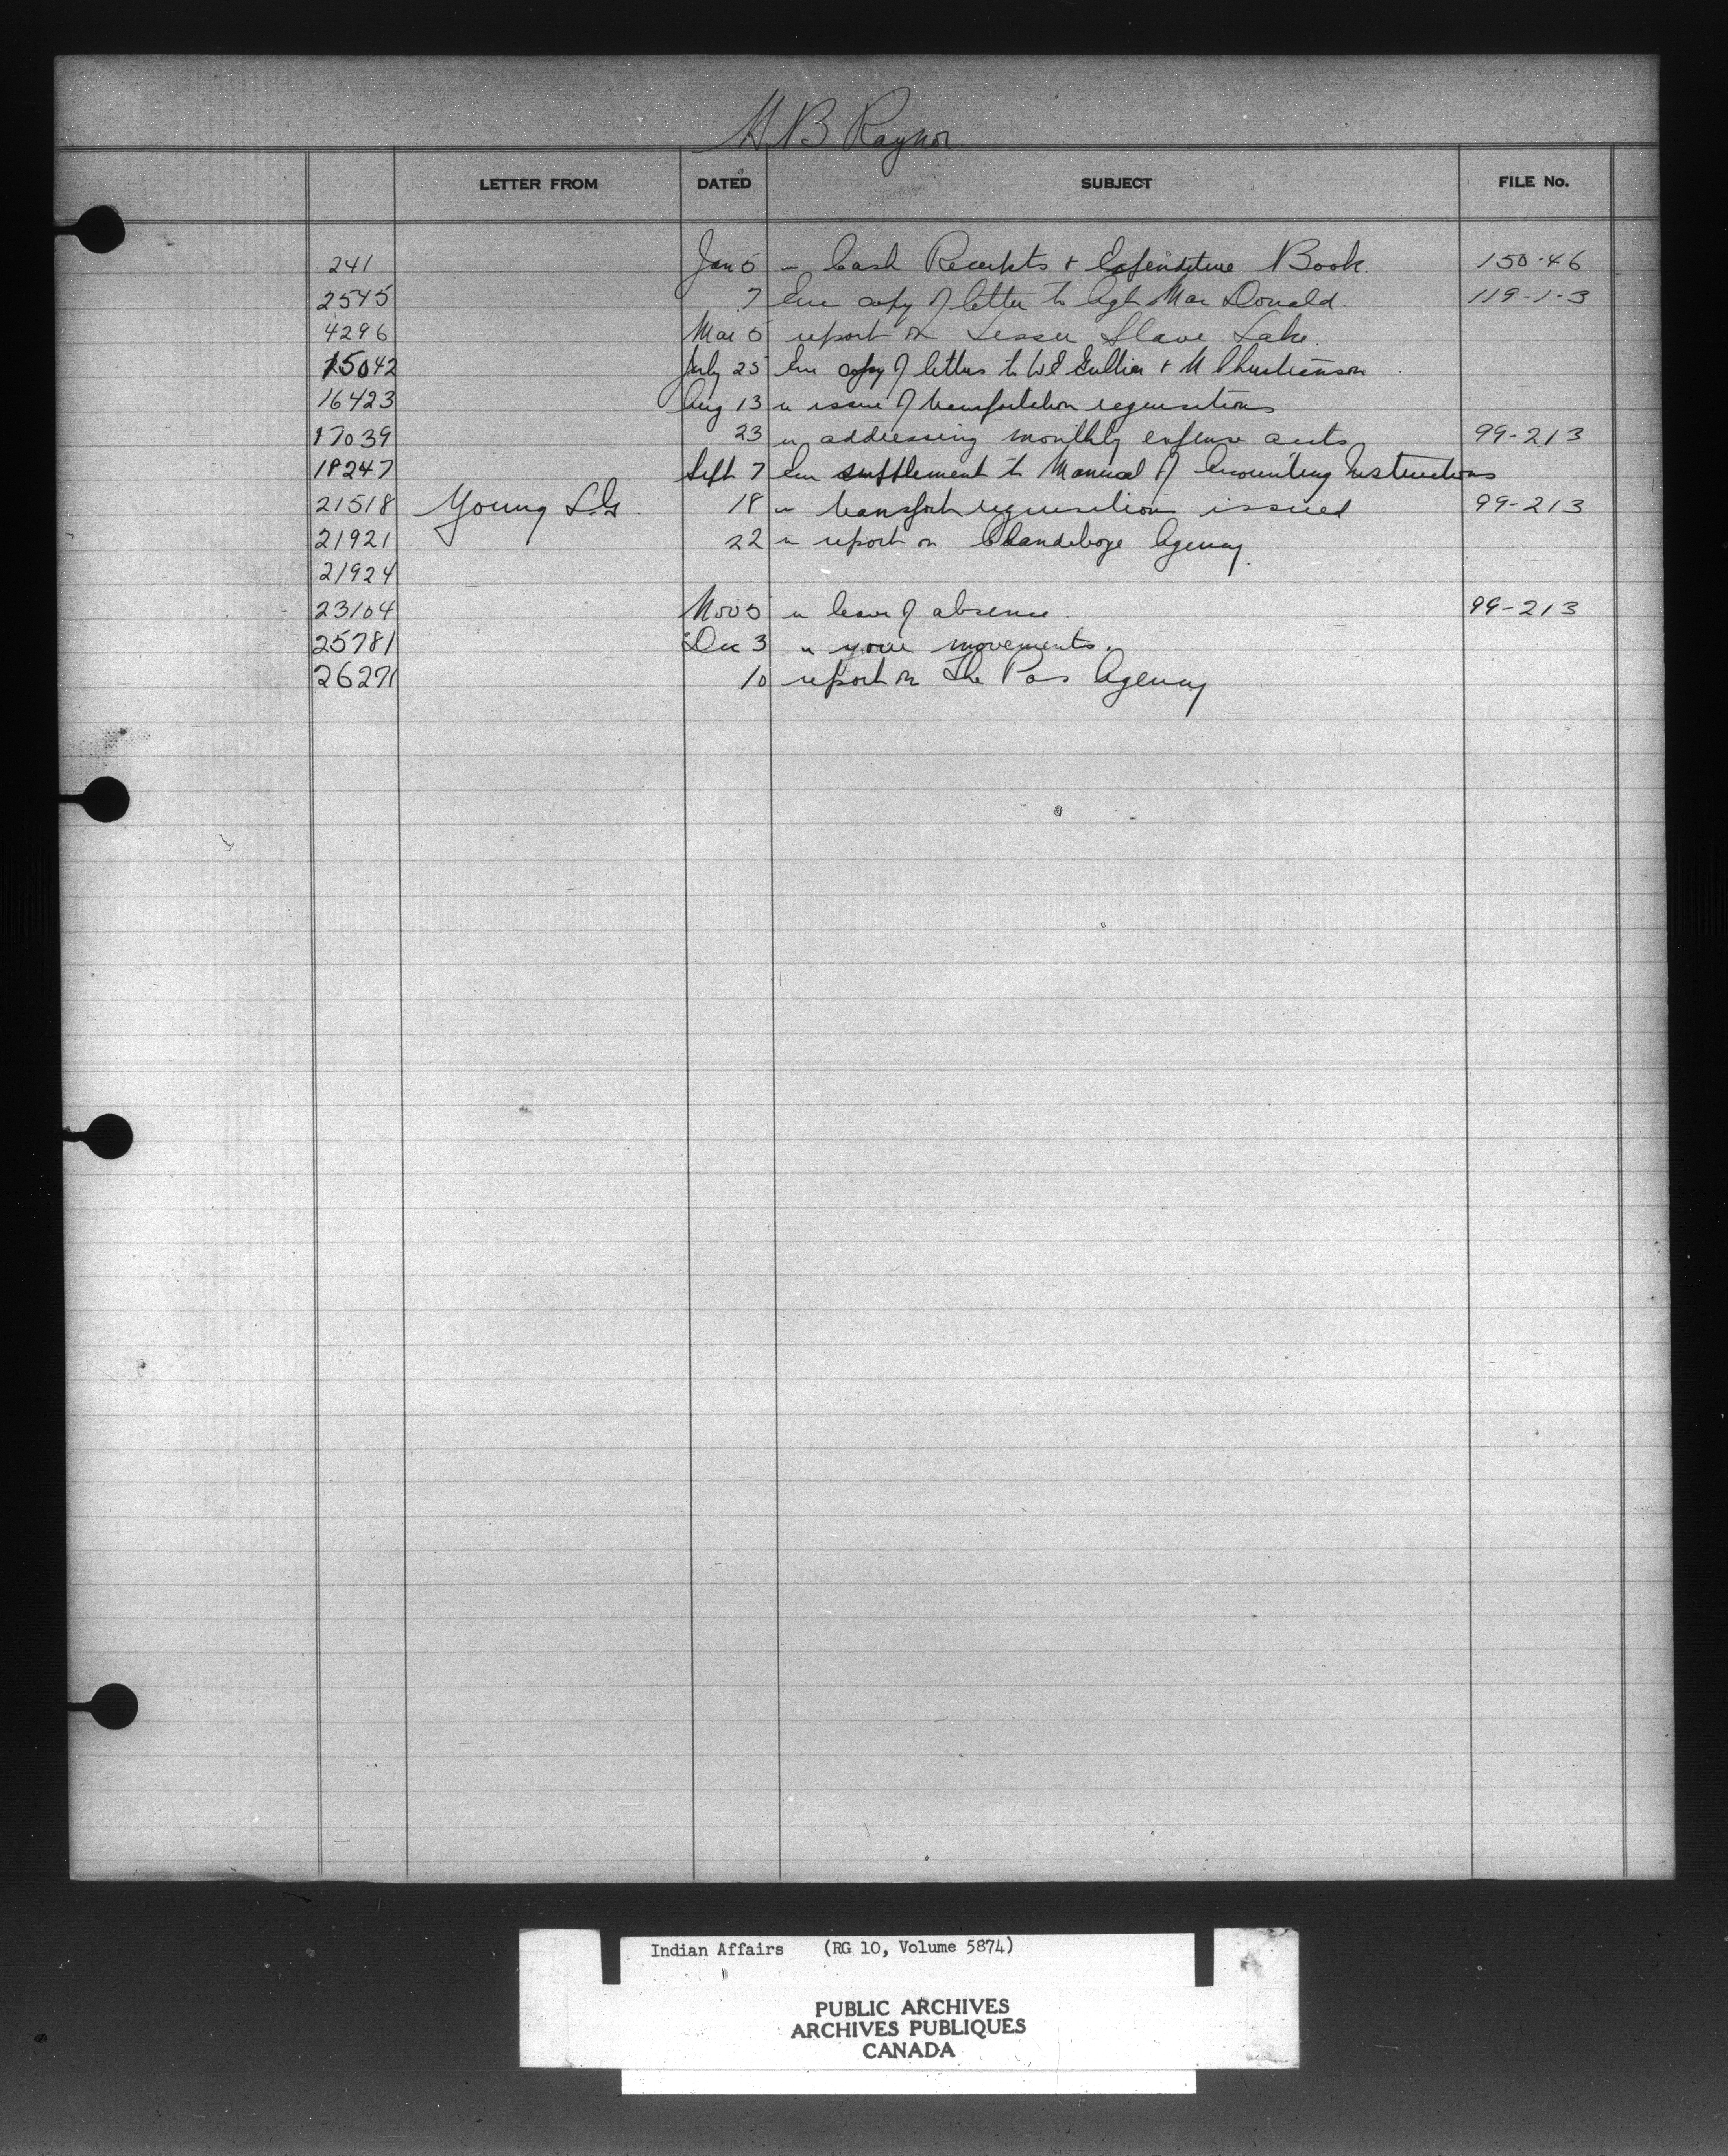 H B Raynor
LETTER FROM DATED SUBJECT FILE No.
241 Jan 5 Cash Receipts & Expenditure Book 150-46
2545 7 Enc copy of letter to Agt Mac Donald. 119-1-3
4296 Mar 5 report on Lesser Slave Lake.
15042 July 25 Enc copy of letters to W E Gullion & M Christianson
16423 Aug 13 re issue of transportation requisitions
17039 23 re addressing monthly expense accts 99-213
18247 Sept 7 Enc supplement to Manual of Accounting Instructions
21518 Young S.G. 18 re transport requisitions issued 99-213
21921 22 re report on Clandeboye Agency.
21924
23104 Nov 5 re leave of absence. 99-213
25781 Dec 3 re your movements.
26271 10 report on The Pas Agency
Indian Affairs (RG 10, Volume 5874)
PUBLIC ARCHIVES
ARCHIVES PUBLIQUES
CANADA